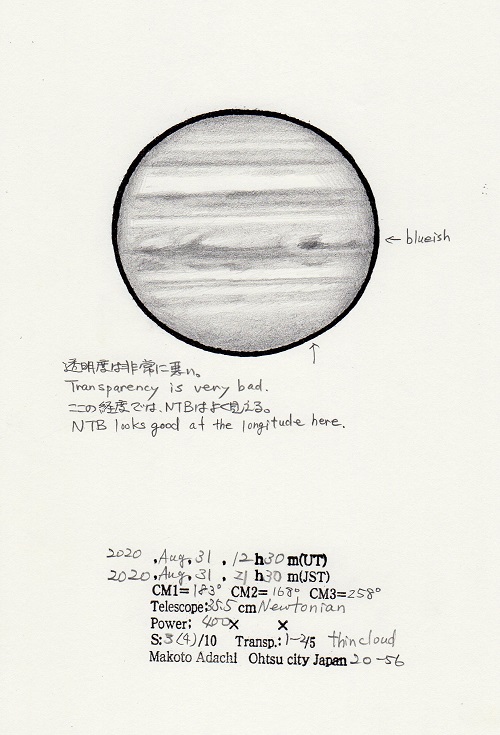 ← blueish
透明度は非常に悪い。
Transparency is very bad.
ここの経度では、NTBはよく見える。
NTB looks good at the longitude here.
2020 , Aug, 31 , 12 h 30 m(UT)
2020 , Aug, 31 , 21 h 30 m(JST)
CM1= 183° CM2= 168° CM3= 258°
Telescope: 35.5 cm Newtonian
Power; 400× ×
S: 3(4)/10 Transp.: 1-2/5 thin cloud
Makoto Adachi Ohtsu city Japan 20-56